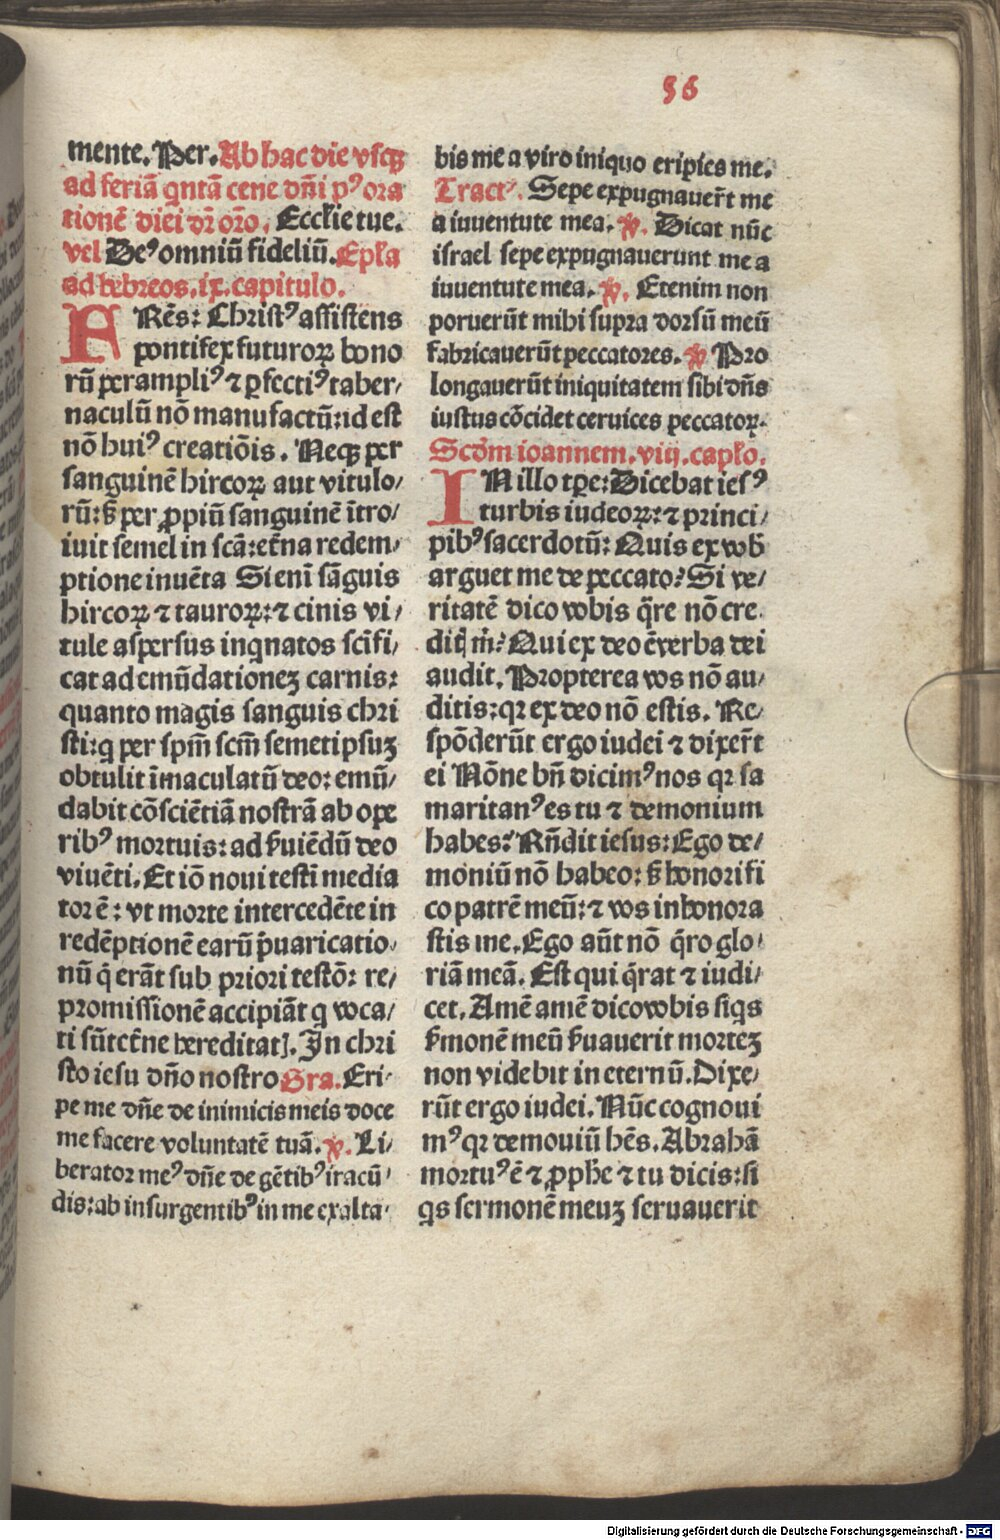 56
mente. Per. Ab hac die vsq̄ꝫ
ad feriā qntā cene dn̄i pꝰ ora
tionē diei dr̄ oro. Ecclie tue.
vel Deꝰ omniū fideliū. Epl̄a
ad hebreos. ix. capitulo.
FRēs: Christꝰ assistens
pontifex futuroꝝ bono
rū per ampliꝰ ⁊ ꝑfectiꝰ taber/
naculū nō manufactū: id est
nō huiꝰ creatiōis. Neqꝫ per
sanguinē hircoꝝ aut vitulo/
rū: sꝫ per ꝓpiū sanguinē ītro/
iuit semel in scā: et̄na redem/
ptione inuēta Si enī sāguis
hircoꝝ ⁊ tauroꝝ: ⁊ cinis vi/
tule aspersus inqnatos scīfi/
cat ad emūdationeꝫ carnis:
quanto magis sanguis chri
sti: q per spm̄ scm̄ semetipsuꝫ
obtulit īmaculatū deo: emū/
dabit cōsciētiā nostrā ab ope
ribꝰ mortuis: ad s̄uiēdū deo
viuēti. Et iō noui testī media
tor ē: vt morte intercedēte in
redēptionē earū p̄uaricatio/
nū q̄ erāt sub priori testō: re/
promissionē accipiāt q voca/
ti sūt et̄ne hereditatꝭ. In chri
sto iesu dn̄o nostro Gra. Eri/
pe me dn̄e de inimicis meis doce
me facere voluntatē tuā. ℣. Li/
berator meꝰ dn̄e de gētibꝰ iracū/
dis: ab insurgentibꝰ in me exalta/
bis me a viro iniquo eripies me.
Tractꝰ. Sepe expugnauer̄t me
a iuuentute mea. ℣. Dicat nūc
israel sepe expugnauerunt me a
iuuentute mea. ℣. Etenim non
potuerūt mihi supra dorsū meū
fabricauerūt peccatores. ℣ Pro
longauerūt iniquitatem sibi dn̄s
iustus cōcidet ceruices peccatoꝝ.
Scd̄m ioannem. viij. caplo.
IN illo tꝑe: Dicebat iesꝰ
turbis iudeoꝝ: ⁊ princi/
pibꝰ sacerdotū: Quis ex vob̄
arguet me de peccato? Si ve/
ritatē dico vobis q̄re nō cre
ditꝭ m̄? Qui ex deo ē verba dei
audit. Propterea vos nō au/
ditis: qꝛ ex deo nō estis. Re/
spōderūt ergo iudei ⁊ dixer̄t
ei Nōne bn̄ dicimꝰ nos qꝛ sa
maritanꝰ es tu ⁊ demonium
habes? Rn̄dit iesus: Ego de/
moniū nō habeo: sꝫ honorifi
co patrē meū: ⁊ vos inhonora
stis me. Ego aūt nō q̄ro glo/
riā meā. Est qui q̄rat ⁊ iudi/
cet. Amē amē dico vobis siqs
s̄monē meū s̄uauerit morteꝫ
non videbit in eternū. Dixe/
rūt ergo iudei. Nūc cognoui
mꝰ qꝛ demouiū hēs. Abrahā
mortuꝰ ē ⁊ ꝓphe ⁊ tu dicis: si
qs sermonē meuꝫ seruauerit
Digitalisierung gefördert durch die Deutsche Forschungsgemeinschaft - DFG